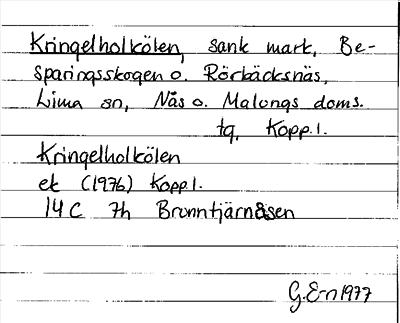 Kringelholkölen, sank mark, Be-
sparingsskogen o. Rörbäcksnäs,
Lima sn, Nås o. Malungs doms.
tg, Kopp.l.
Kringelholkölen
ek (1976) Kopp.l.
14 C 7h Brunntjärnåsen
G. Ern 1977